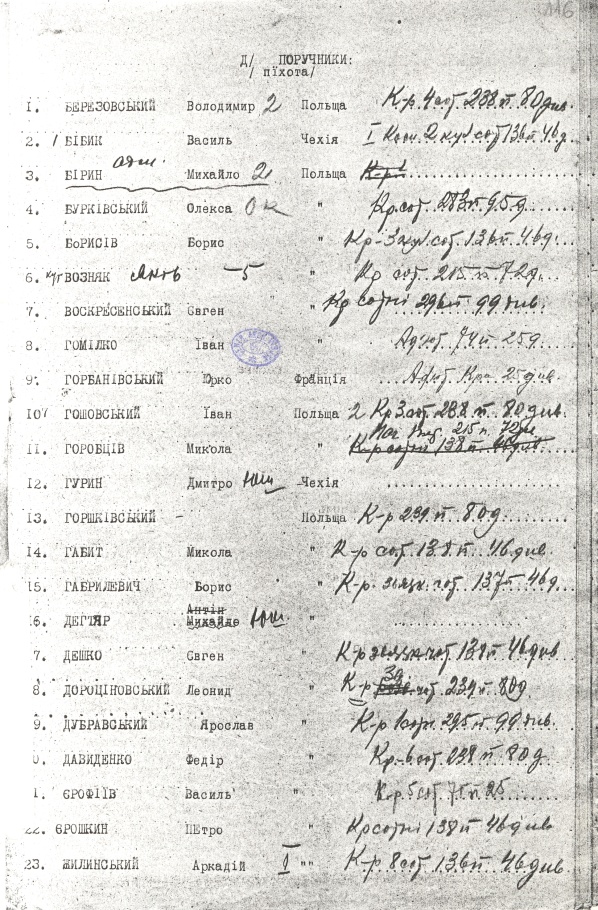 116
Д/ ПОРУЧНИКИ:
/ піхота/
1. БЕРЕЗОВСЬКИЙ Володимир 2 Польща К-р 4 сот. 238 п. 80 див.
2. / БІБИК Василь Чехія 136 п 46 д.
3. БІРИН Михайло 2 Польща К-р
4. БУРКІВСЬКИЙ Олекса ОК " Кр. сот. 283 п. 95 д
5. БОРИСІВ Борис " Кр- сот. 136 п. 46 д.
6. ВОЗНЯК Яків -5 " Кр сот. 215 п 72 д.
7. ВОСКРЕСЕНСЬКИЙ Євген " Кр сотні 296 п 99 див.
8. ГОМІЛКО Іван " Ад'ют 74 п 25 д
9. ГОРБАНІВСЬКИЙ Юрко Франція 25 див
10 ГОШОВСЬКИЙ Іван Польща 2 Кр 3 сот. 238 п. 80 див.
215 п. 72 див
11. ГОРОБЦІВ Микола " К-р сотні 138 п 46 див.
12. ГУРИН Дмитро Юш -Чехія
13. ГОРШКІВСЬКИЙ - Польща К-р 239 п. 80 д.
14. ГАБИТ Микола " К-р сот. 138 п 46 див.
15. ГАБРИЛЕВИЧ Борис " К-р. звязк. сот. 137 п 46 д.
Антін
16. ДЕГТЯР Михайло Юш. "
7. ДЕШКО Євген " К-р звязк сот 138 п 46 див
8. ДОРОЦІНОВСЬКИЙ Леонид " К-р сот. 239 п. 80 д
9. ДУБРАВСЬКИЙ Ярослав " К-р 1 сотн 295 п 99 див.
0. ДАВИДЕНКО Федір " Кр.-6 сот. 238 п. 80 д.
1. ЄРОФІЇВ Василь " К-р 5 сот. 75 п. 25
22. ЄРОШКИН ПЕтро " Кр сотні 138 п 46 див
23. ЖИЛИНСЬКИЙ Аркадій I "" К-р 8 сот 136 п 46 див.